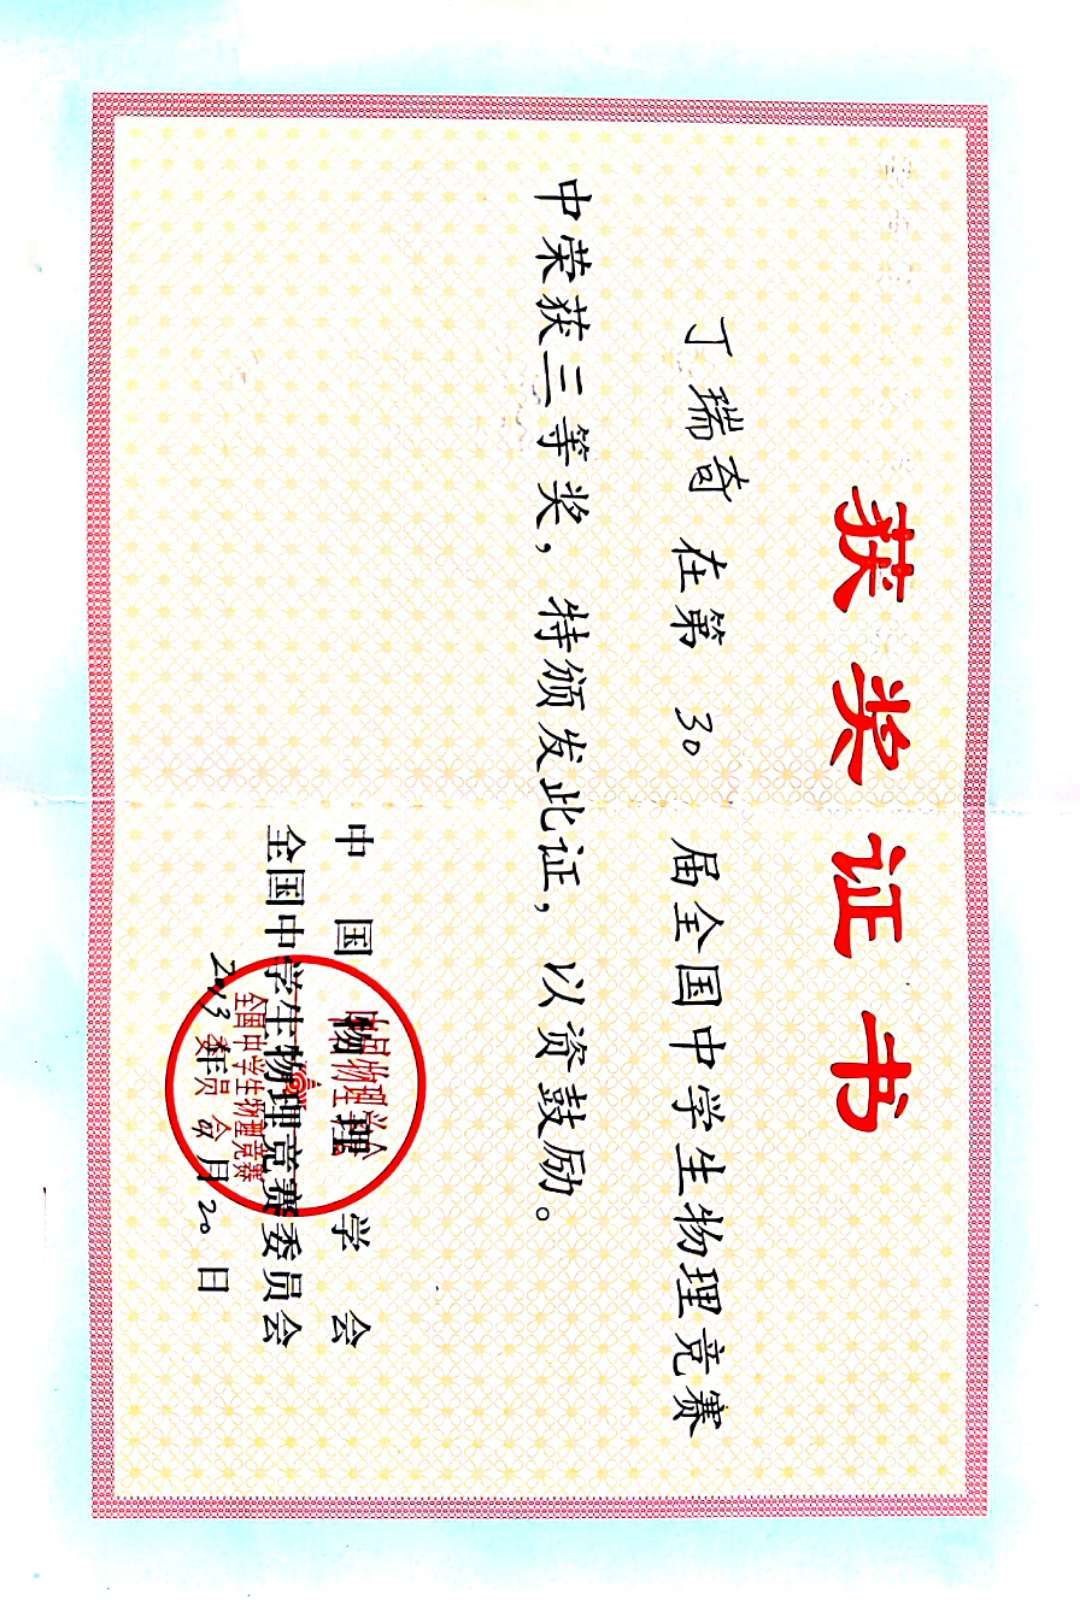 获奖证书
丁瑞奇在第 30 届全国中学生物理竞赛
中荣获三等奖，特颁发此证，以资鼓励。
中国物理学会
全国中学生物理竞赛委员会
2013年 月20日
中国物理学会
全国中学生物理竞赛
委员会